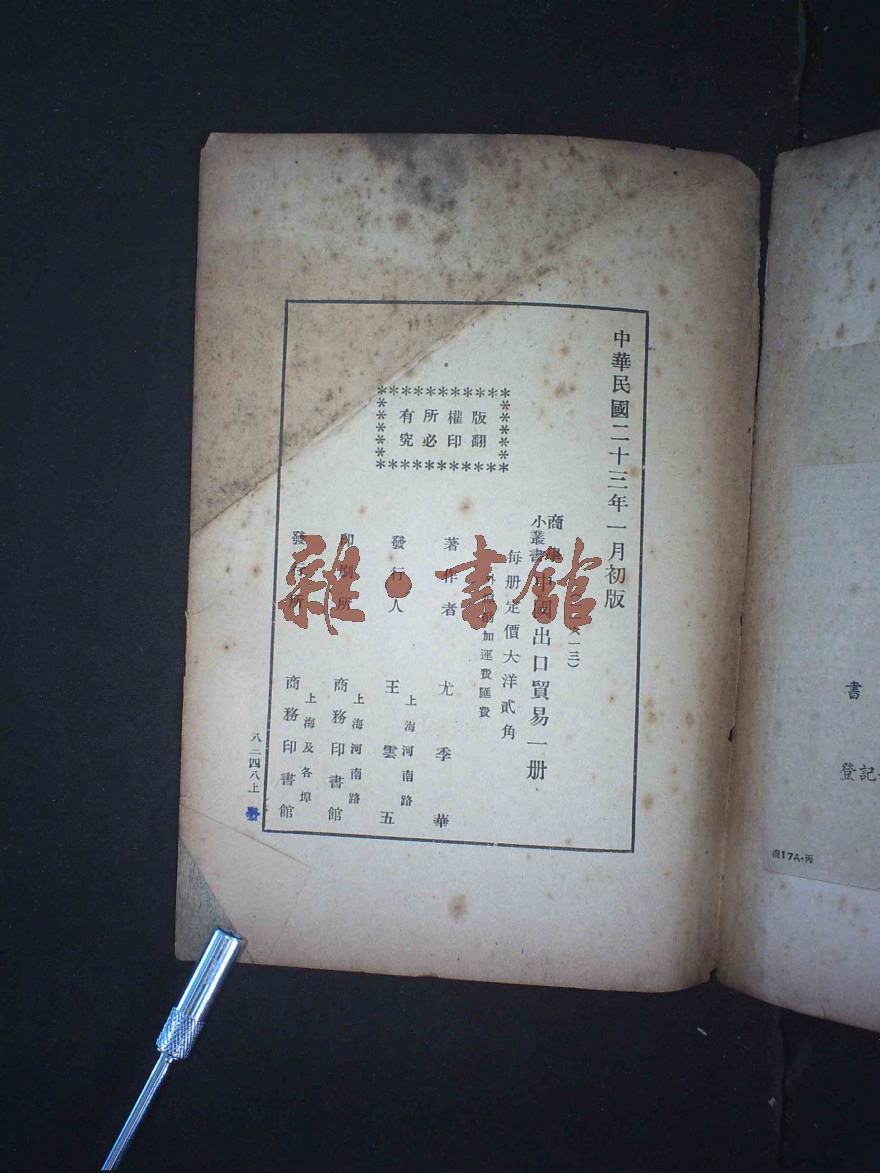 中華民國二十三年一月初版
商
小叢書中國出口貿易一册
一三)
每册定價大洋貳角
加運費匯費
版權所有
翻印必究
著作者 尤季華
發行人 王雲五
上海河南路
印刷所 商務印書館
上海河南路
發行所 商務印書館
上海及各埠
八二四八上
雜·書館
書
登記
17A·丙